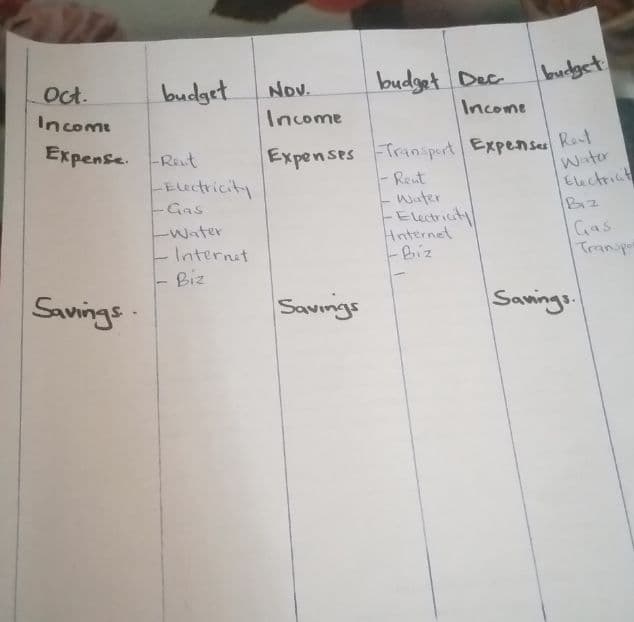 Oct. budget Nov. budget Dec budget
Income Income Income
Expense. Expenses Expenses
-Rent
-Electricity
-Gas
-Water
- Internet
- Biz
-Transport
- Rent
- Water
- Electricity
Internet
- Biz
-
Rent
Water
Electricit
Biz
Gas
Transpo
Savings. Savings Savings.